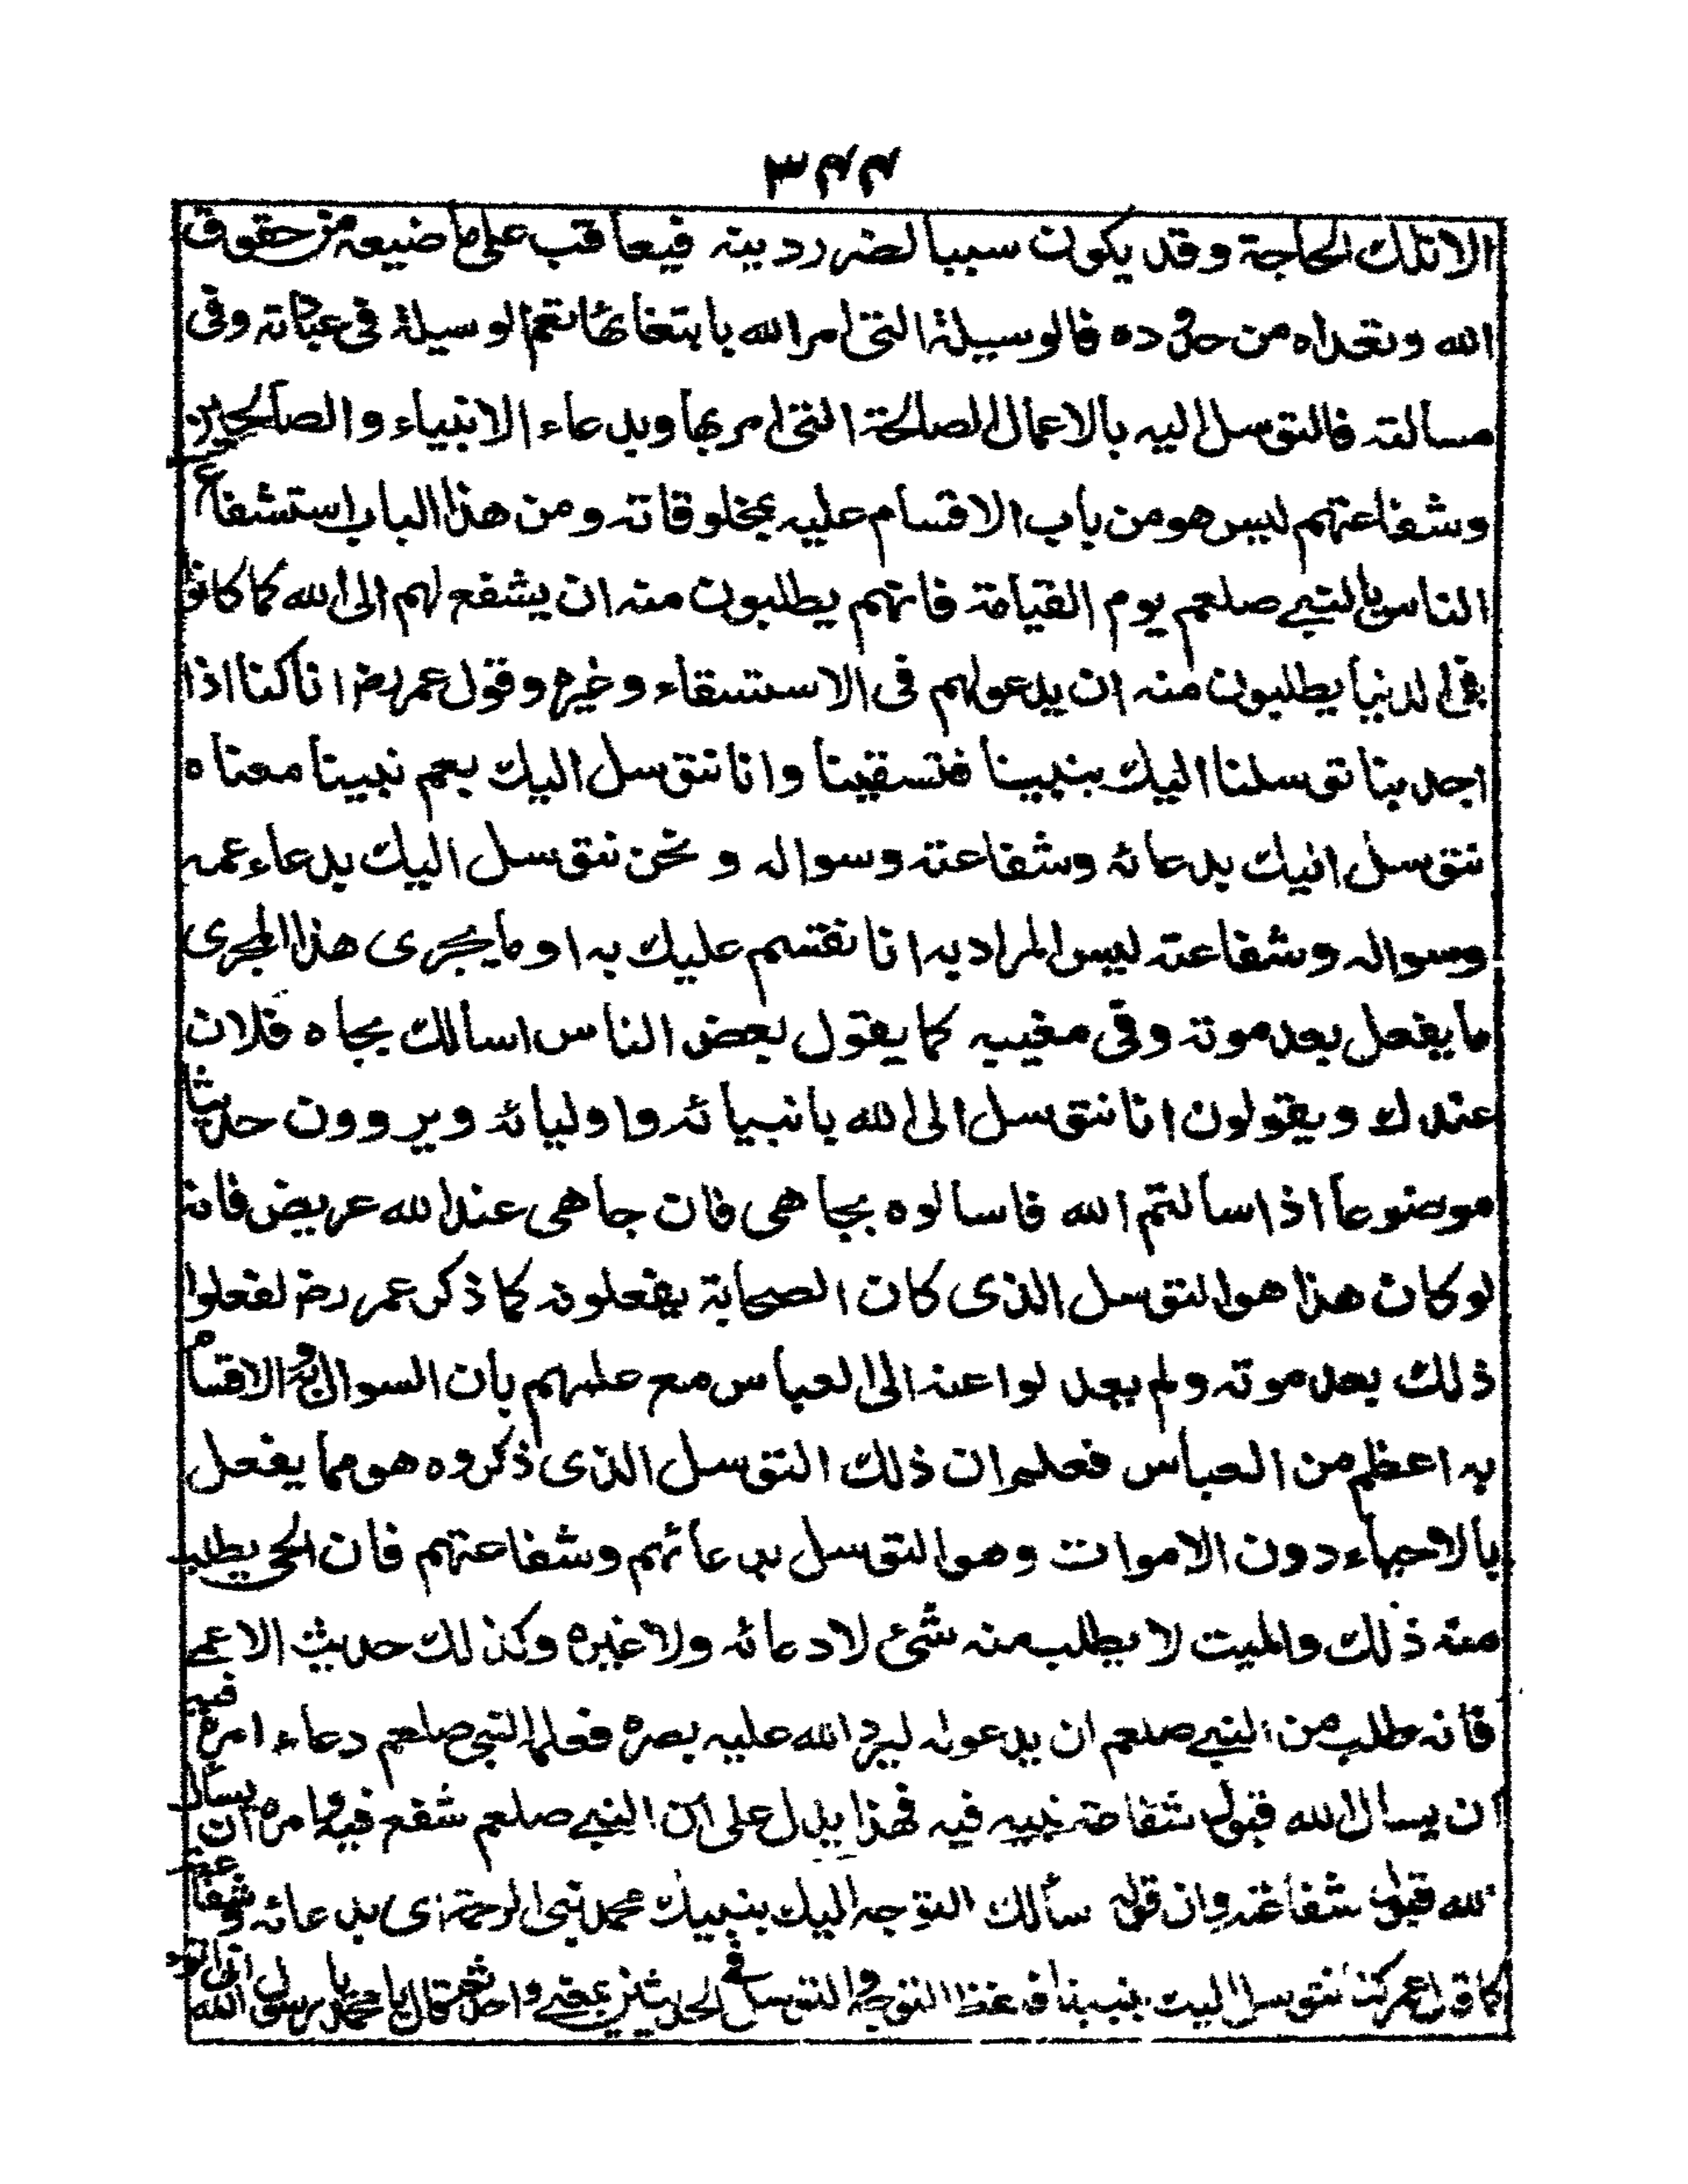 ٣٤٤
الا تلك الحاجة وقد يكون سببا لضرر دينه فيعاقب على ما ضيعه من حقوق
الله وتعداه من حدوده فالوسيلة التى امر الله بابتغائها تعم الوسيلة فى عبادته وفى
مسالته فالتوسل اليه بالاعمال الصالحة التى امر بها وبدعاء الانبياء والصالحين
وشفاعتهم ليس هو من باب الاقسام عليه بمخلوقاته ومن هذا الباب استشفاع
الناس بالنبي صلعم يوم القيامة فانهم يطلبون منه ان يشفع لهم الى الله كما كانوا
فى الدنيا يطلبون منه ان يدعو لهم فى الاستسقاء وغيره وقول عمر رض انا كنا اذا
اجدبنا توسلنا اليك بنبينا فتسقينا وانا نتوسل اليك بعم نبينا معناه
نتوسل اليك بدعائه وشفاعته وسواله و نحن نتوسل اليك بدعاء عمه
وسواله وشفاعته ليس المراد به انا نقسم عليك به او ما يجرى هذا المجرى
ما يفعل بعد موته وفى مغيبه كما يقول بعض الناس اسالك بجاه فلان
عندك ويقولون انا نتوسل الى الله بانبيائه واوليائه ويروون حديثا
موضوعا اذا سالتم الله فاسالوه بجاهى فان جاهى عند الله عريض فانه
لو كان هذا هو التوسل الذى كان الصحابة يفعلونه كما ذكر عمر رض لفعلوا
ذلك بعد موته ولم يعدلوا عنه الى العباس مع علمهم بان السوال به والاقسام
به اعظم من العباس فعلم ان ذلك التوسل الذى ذكروه هو مما يفعل
بالاحياء دون الاموات وهو التوسل بدعائهم وشفاعتهم فان الحى يطلب
منه ذلك والميت لا يطلب منه شئ لا دعائه ولا غيره وكذلك حديث الاعمى
فانه طلب من النبي صلعم ان يدعو له ليرد الله عليه بصره فعلمه النبي صلعم دعاء امره فيه
ان يسال الله قبول شفاعة نبيه فيه فهذا يدل على ان النبي صلعم شفع فيه وامره ان يسال
الله قبول شفاعته وان قوله سألك التوجه اليك بنبيك محمد نبى الرحمة اى بدعائه وشفاعته
كما قال عمر كنا نتوسل اليك بنبينا فلفظ التوجه والتوسل فى الحديثين بمعنى واحد ثم قال يا محمد يا رسول الله انى